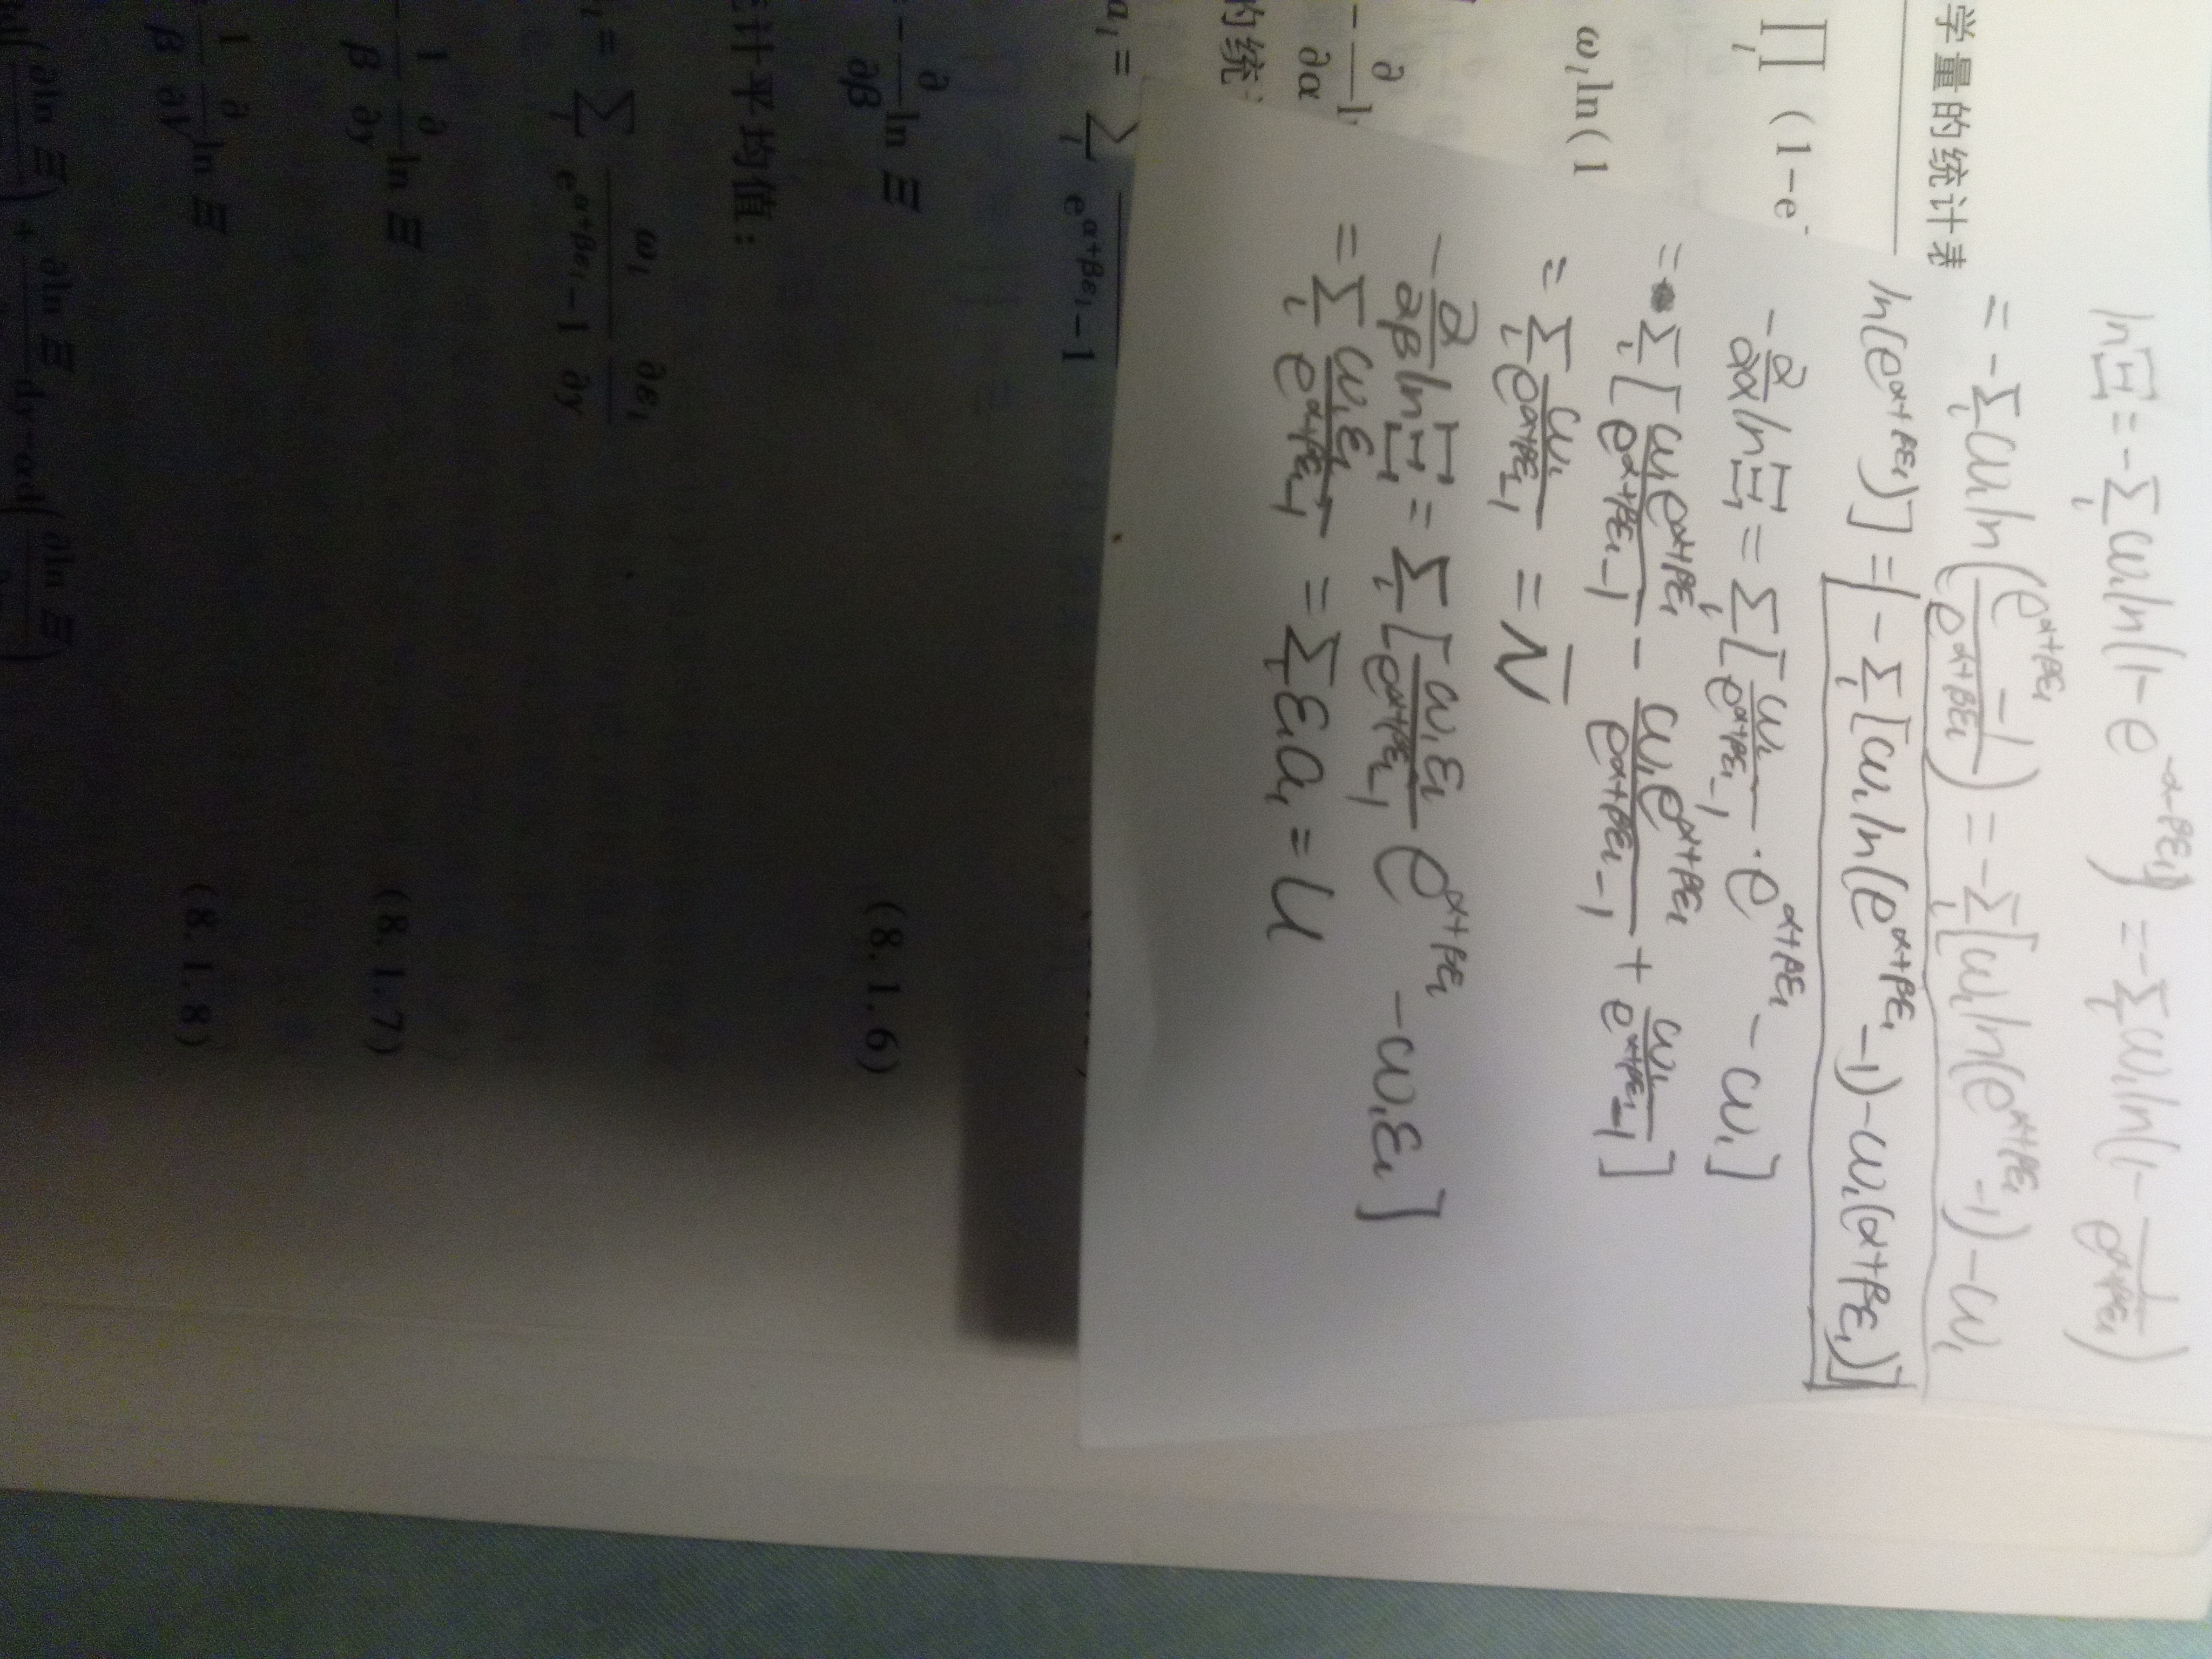 学量的统计表
∏_l (1-e^-
ω_l ln(1
-∂/∂α l
的统
a_l = ∑_l 1/(e^{α+βε_l}-1
-∂/∂β ln Ξ (8.1.6)
计平均值：
_l = ∑_l ω_l/(e^{α+βε_l}-1) ∂ε_l/∂y
-1/β ∂/∂y ln Ξ (8.1.7)
1/β ∂/∂V ln Ξ (8.1.8)
lnΞ = -∑_l ω_l ln(1-e^{-α-βε_l}) = -∑_l ω_l ln(1-1/e^{α+βε_l})
= -∑_l ω_l ln((e^{α+βε_l}-1)/e^{α+βε_l}) = -∑_l[ω_l ln(e^{α+βε_l}-1)-ω_l
ln(e^{α+βε_l})] = -∑_l[ω_l ln(e^{α+βε_l}-1)-ω_l(α+βε_l)]
-∂/∂α lnΞ = ∑_l[ω_l/(e^{α+βε_l}-1)·e^{α+βε_l}-ω_l]
= ∑_l[ω_l e^{α+βε_l}/(e^{α+βε_l}-1) - ω_l e^{α+βε_l}/(e^{α+βε_l}-1) + ω_l/(e^{α+βε_l}-1)]
= ∑_l ω_l/(e^{α+βε_l}-1) = N̄
-∂/∂β lnΞ = ∑_l[ω_l ε_l/(e^{α+βε_l}-1) e^{α+βε_l} -ω_l ε_l]
= ∑_l ω_l ε_l/(e^{α+βε_l}-1) = ∑_l ε_l a_l = U